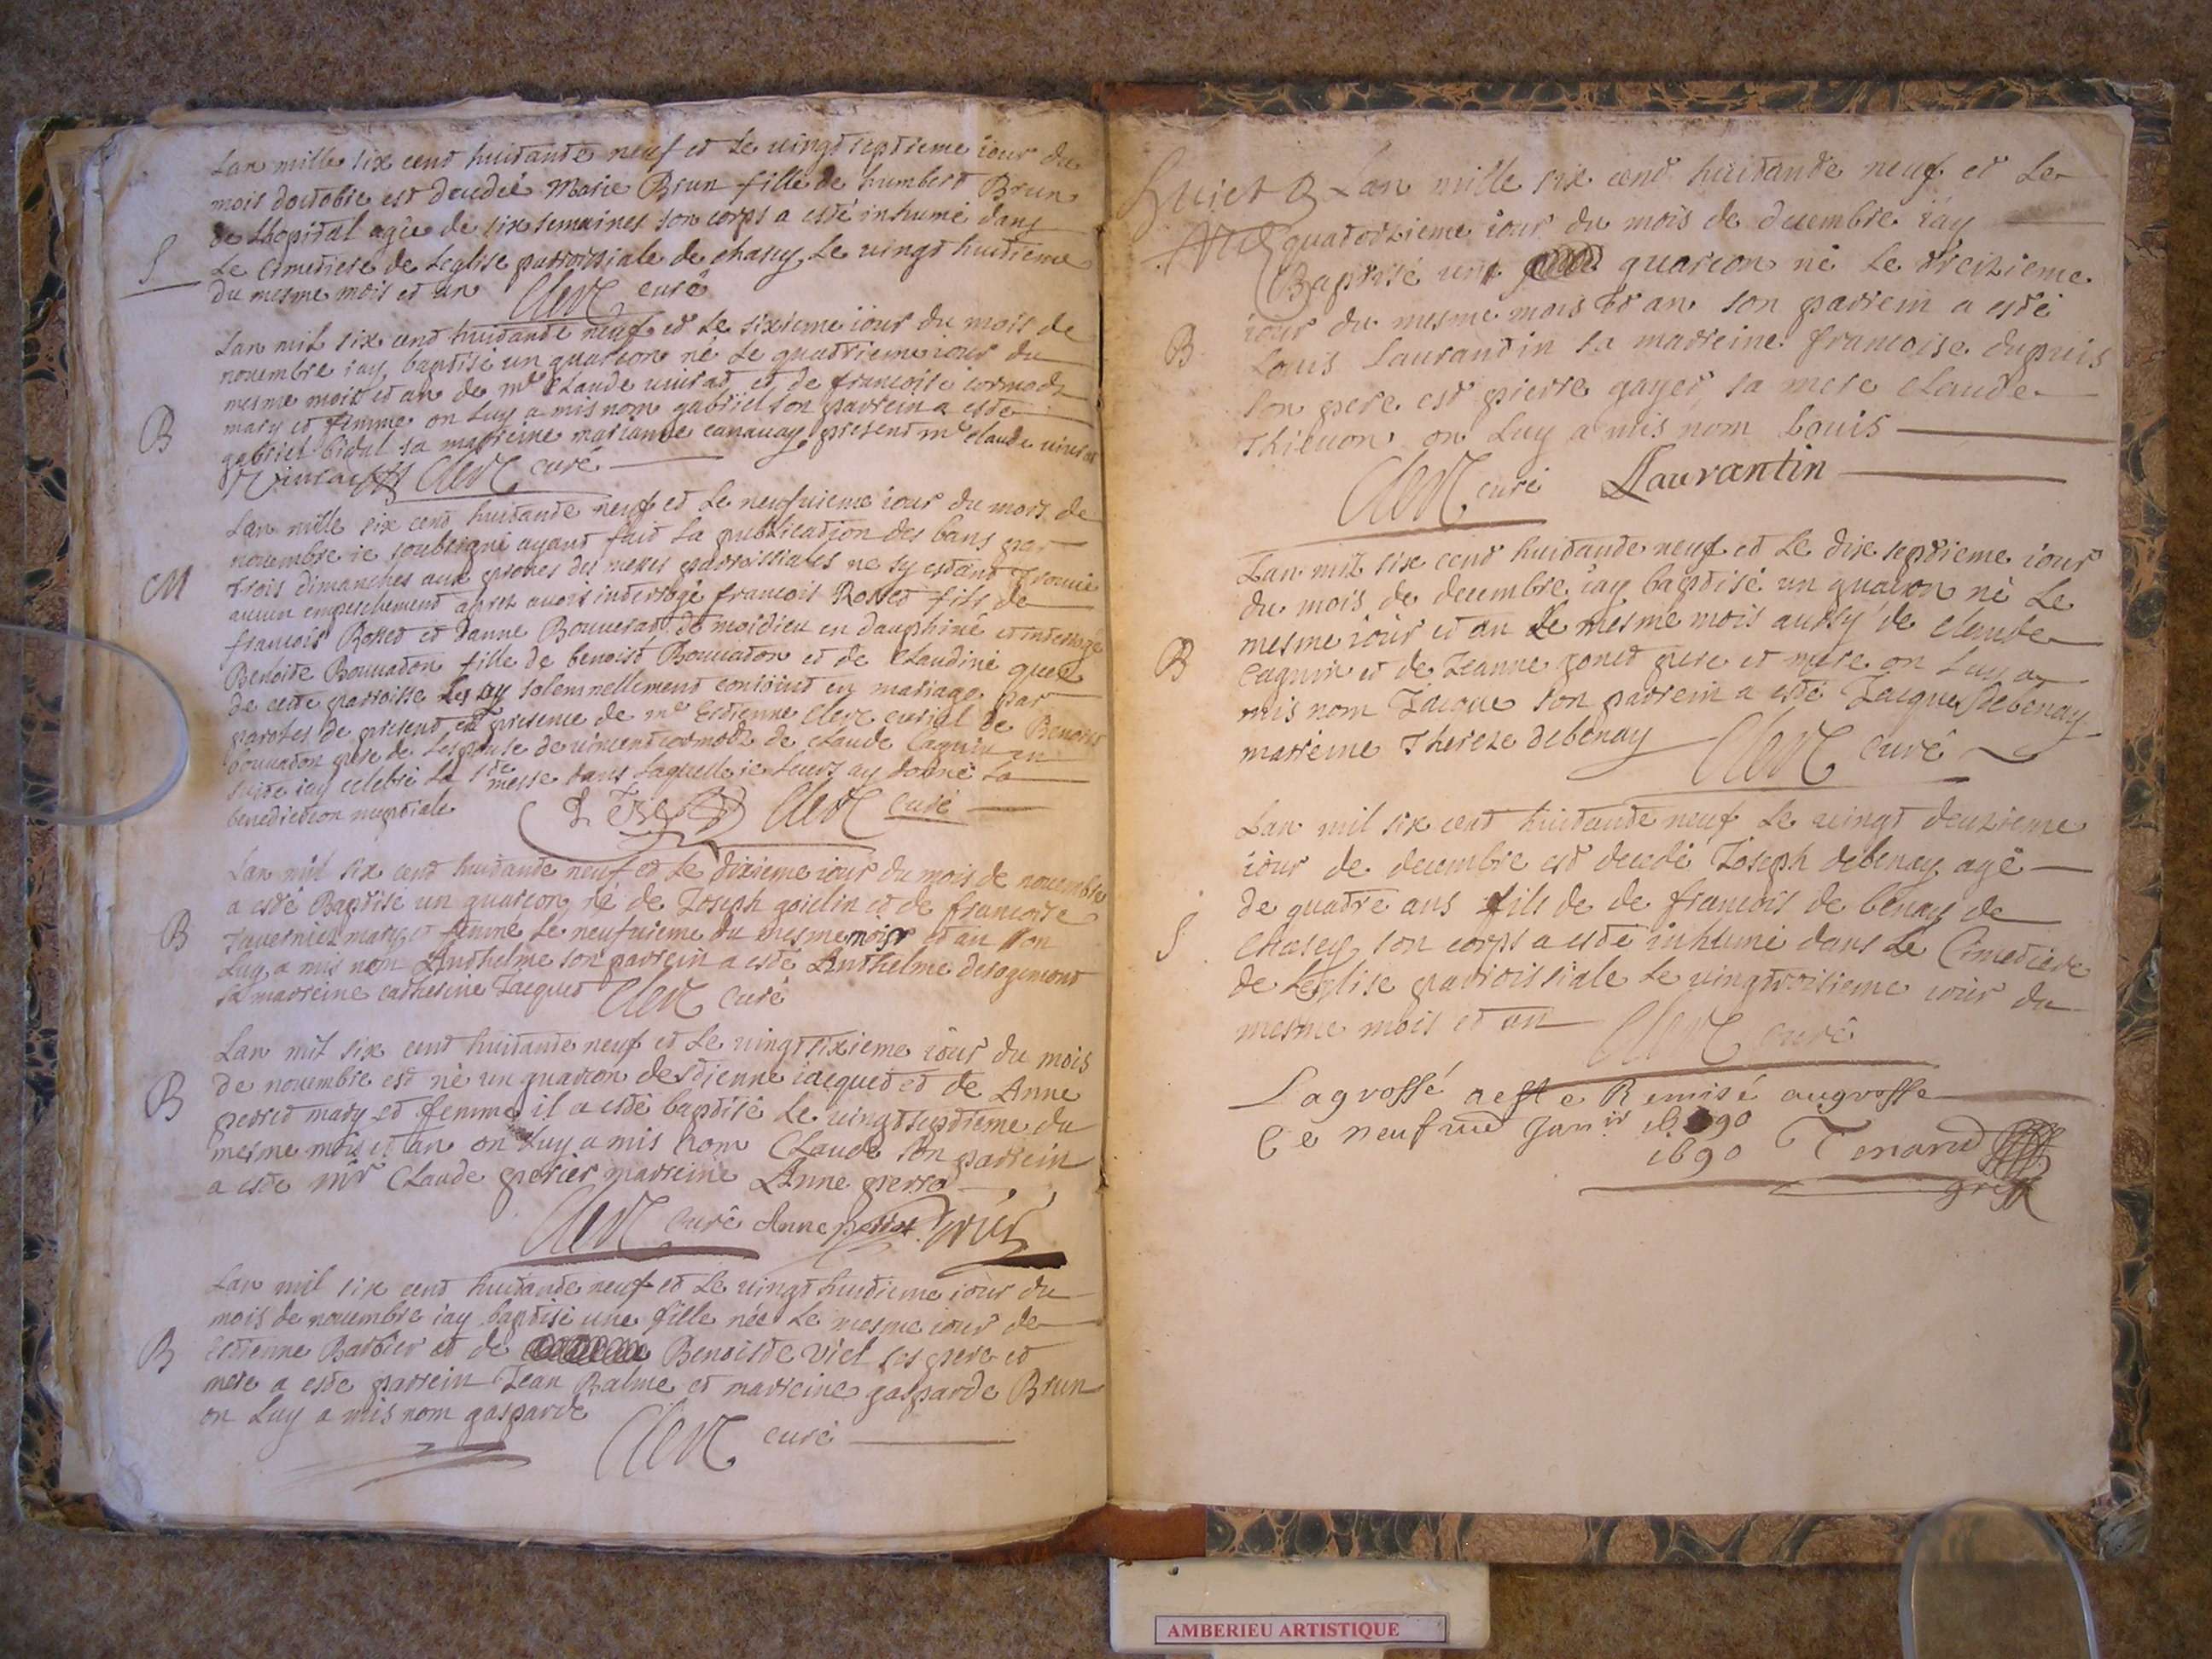 Lan mille six cent huitante neuf et le vingt septieme iour du
mois doctobre est decedeé Marie Brun fille de humbert Brun
de Lhopital ageé de six semaines son corps a esté inhumé dans
S Le Cimetiere de Leglise parroissiale de chasey Le vingt huitieme
du mesme mois et an Clerc curé
Lan mil six cent huitante neuf et Le sixieme iour du mois de
novembre iay baptisé un guarcon né Le quatrieme iour du
mesme mois et an de me Claude vivrat et de francoise cormod
B mary et femme on Luy a mis nom gabriel son parrein a esté
gabriel bidal sa marreine marianne canavay present me claude
Clerc curé
Lan mille six cent huitante neuf et Le neufvieme iour du mois de
novembre ie soubsigné ayant fait La publication des bans par
M trois dimanches aux prones des messes parroissiales ne sy estant trouvé
aucun empeschement apres avois interrogé francois Rosset fils de
francois Rosset et danne Bouverat de moidieu en dauphiné et interrogé
Benoite Bouvaton fille de benoist Bouvaton et de Claudine
de cette parroisse Les ay solemnellement conioint en mariage par
paroles de present en presence de me Estienne Clerc curial de Benoist
bouvaton pere de Lespouse de vincent cormod de claude Caguin en
suite iay celebré La Ste messe dans Laquelle ie Leurs ay donné La
benediction nuptiale Clerc curé
Lan mil six cent huitante neuf et Le dixieme iour du mois de novembre
a esté Baptisé un guarcon né de Joseph goiclin et de francoise
B Tavernier mary et femme Le neufvieme du mesme mois et an on
Luy a mis nom Anthelme son parrein a esté Anthelme desogemont
sa marreine catherine Jacquet Clerc curé
Lan mil six cent huitante neuf et Le vingt sixieme iour du mois
B de novembre est né un guarcon destienne iacquet et de Anne
perret mary et femme il a esté baptisé Le vingt septieme du
mesme mois et an on Luy a mis nom Claude son parrein
a este mr Claude perier marreine Anne perro
Clerc curé Anne
Lan mil six cent huitante neuf et Le vingt huitieme iour du
mois de novembre iay baptisé une fille née Le mesme iour de
B Estienne Barbier et de Benoiste viel ses pere et
mere a este parrein Jean Balme et marreine gasparde Brun
on Luy a mis nom gasparde
Clerc curé
Lan mille six cent huitante neuf et Le
quatorzieme iour du mois de decembre iay
Baptisé un guarcon né Le treizieme
iour du mesme mois et an son parrein a esté
B Louis Laurantin sa marreine francoise dupuis
son pere est pierre gayet sa mere claude
Thievon on Luy a mis nom Louis
Clerc curé Laurantin
Lan mil six cent huitante neuf et Le dix septieme iour
du mois de decembre iay baptisé un guarcon né Le
mesme iour et an Le mesme mois aussy de claude
B Caguin et de Jeanne ponet pere et mere on Luy a
mis nom Jacque son parrein a esté Jacque debenay
marreine Thereze debenay Clerc curé
Lan mil six cent huitante neuf Le vingt deuxieme
iour de decembre est decedé Joseph debenay agé
de quatre ans fils de de francois de benay de
S Chasey son corps a esté inhumé dans Le Cimetiere
de Leglise parroissiale Le vingtroisieme iour du
mesme mois et an Clerc curé
Lagrossé a este Remisé augroffe
Ce neufme Janir 1690
1690 Tenand
greff
AMBERIEU ARTISTIQUE